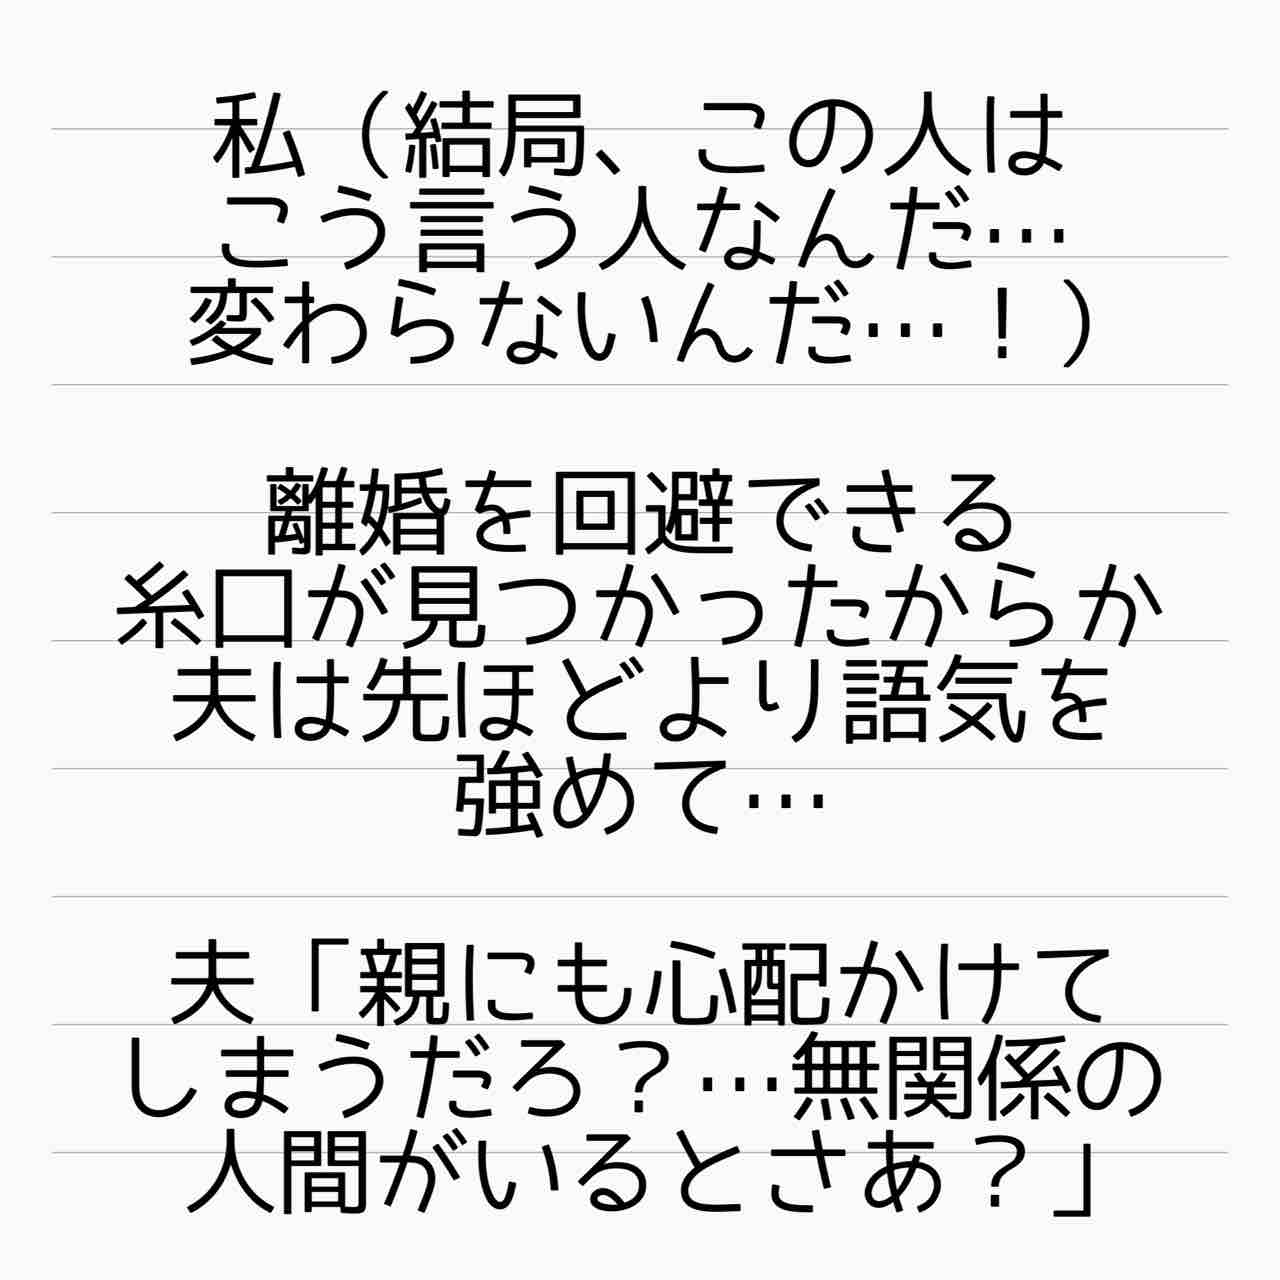 私（結局、この人は
こう言う人なんだ…
変わらないんだ…！）
離婚を回避できる
糸口が見つかったからか
夫は先ほどより語気を
強めて…
夫「親にも心配かけて
しまうだろ？…無関係の
人間がいるとさあ？」